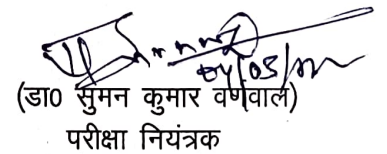 04/05/
(डा0 सुमन कुमार वर्णवाल)
परीक्षा नियंत्रक